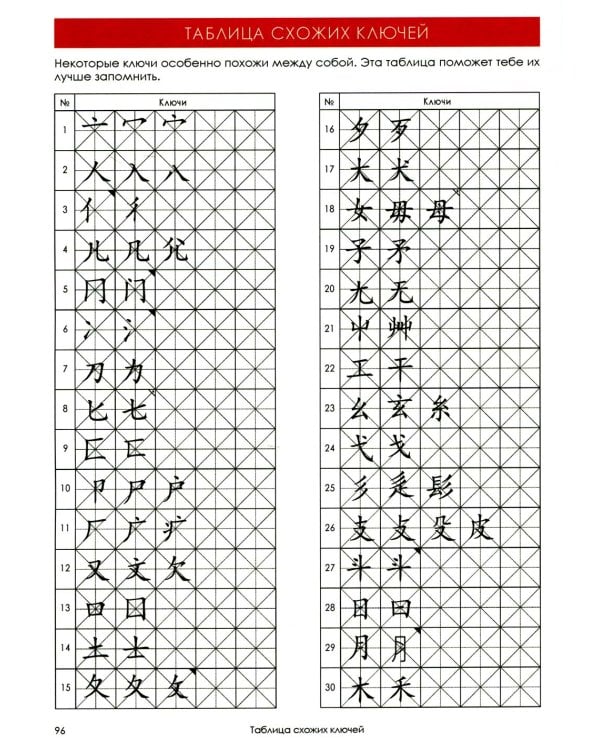 ТАБЛИЦА СХОЖИХ КЛЮЧЕЙ
Некоторые ключи особенно похожи между собой. Эта таблица поможет тебе их
лучше запомнить.
№ Ключи
1 亠 冖 宀
2 人 入 八
3 亻 彳
4 几 凡 殳
5 冂 门
6 冫 氵
7 刀 力
8 匕 七
9 匚 匸
10 卩 尸 户
11 厂 广 疒
12 又 文 欠
13 口 囗
14 土 士
15 夂 夊 攵
№ Ключи
16 夕 歹
17 大 犬
18 女 毋 母
19 子 矛
20 尢 无
21 屮 艸
22 工 干
23 幺 玄 糸
24 弋 戈
25 彡 辵 髟
26 支 攴 殳 皮
27 斗 斗
28 日 曰
29 月
30 木 禾
96 Таблица схожих ключей